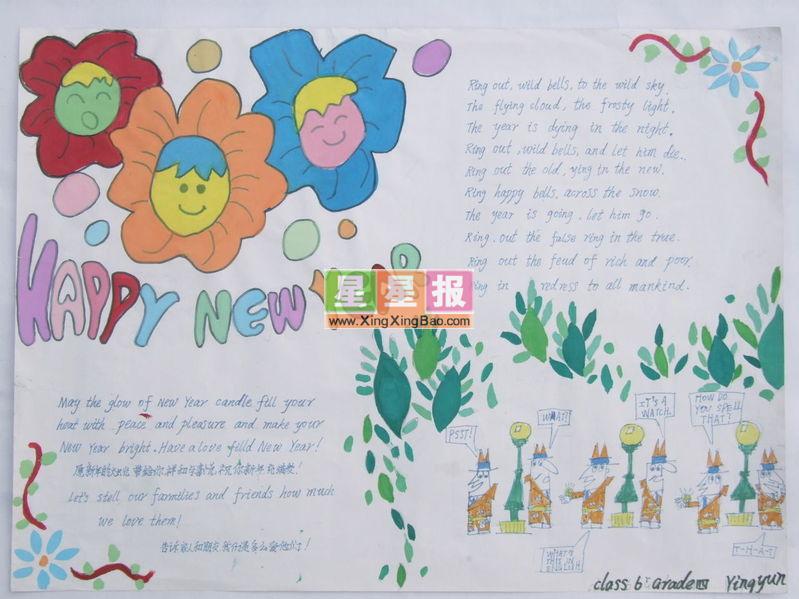 HAPPY NEW
星星报
www.XingXingBao.com
Ring out, wild bells, to the wild sky.
The flying cloud, the frosty light.
The year is dying in the night.
Ring out, wild bells, and let him die.
Ring out the old, ying in the new.
Ring happy bells, across the snow.
The year is going, let him go.
Ring. out the false ring in the true.
Ring out the feud of rich and poor.
Ring in redress to all mankind.
May the glow of New Year candle fill your
heat with peace and pleasure and make your
New Year bright. Have a love filld New Year!
Let's stell our farmlies and friends how much
we love them!
告诉家人和朋友我们是多么爱他们!
PSST!
WHAT?
WHAT'S THIS IN ENGLISH
IT'S A WATCH.
HOW DO YOU SPELL THAT?
T-H-A-T
class 6 Grade四 Yingyun